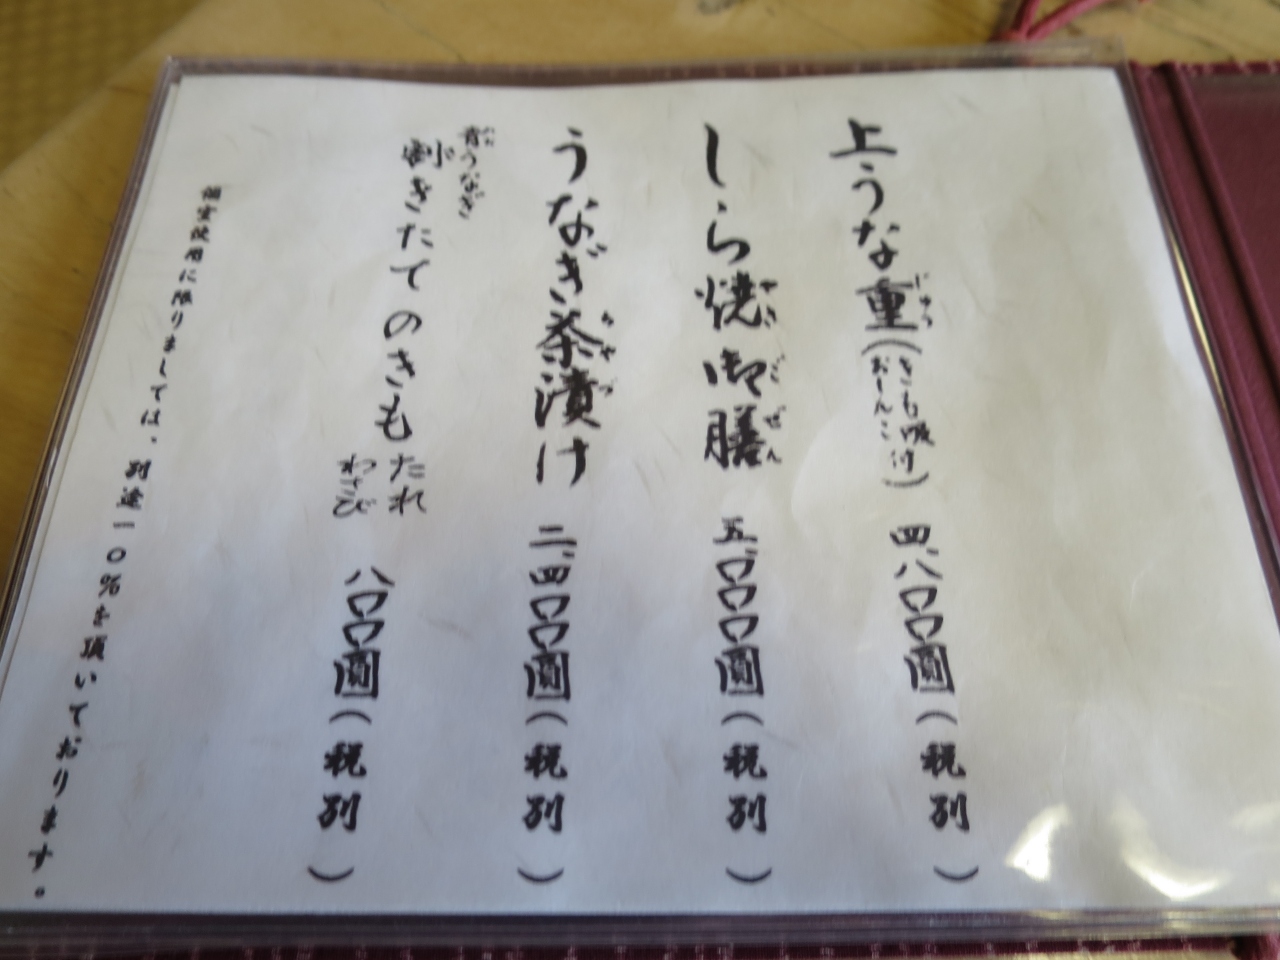 上うな重(きも吸付 おしんこ) 四、八〇〇圓(税別)
じゅう
しら焼御膳 五、〇〇〇圓(税別)
やきごぜん
うなぎ茶漬け 二、四〇〇圓(税別)
ちゃづ
青うなぎ
割きたてのきも たれ わさび 八〇〇圓(税別)
個室使用に限りましては、別途一〇%を頂いております。